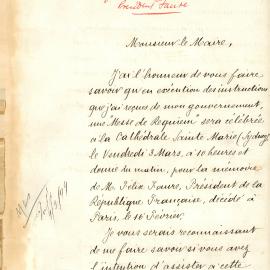 President Faure
Monsieur le Maire,
J'ai l'honneur de vous faire
savoir qu'en exécution des instructions
que j'ai reçues de mon gouvernement,
une Messe de Requiem sera célébrée
à la Cathédrale Sainte Marie (Sydney)
le Vendredi 3 Mars, à 10 heures et
demie du matin, pour la mémoire
de Mr Félix Faure, Président de la
République Française, décédé à
Paris, le 16 Février.
Je vous serais reconnaissant
de me faire savoir si vous avez
l'intention d'assister à cette